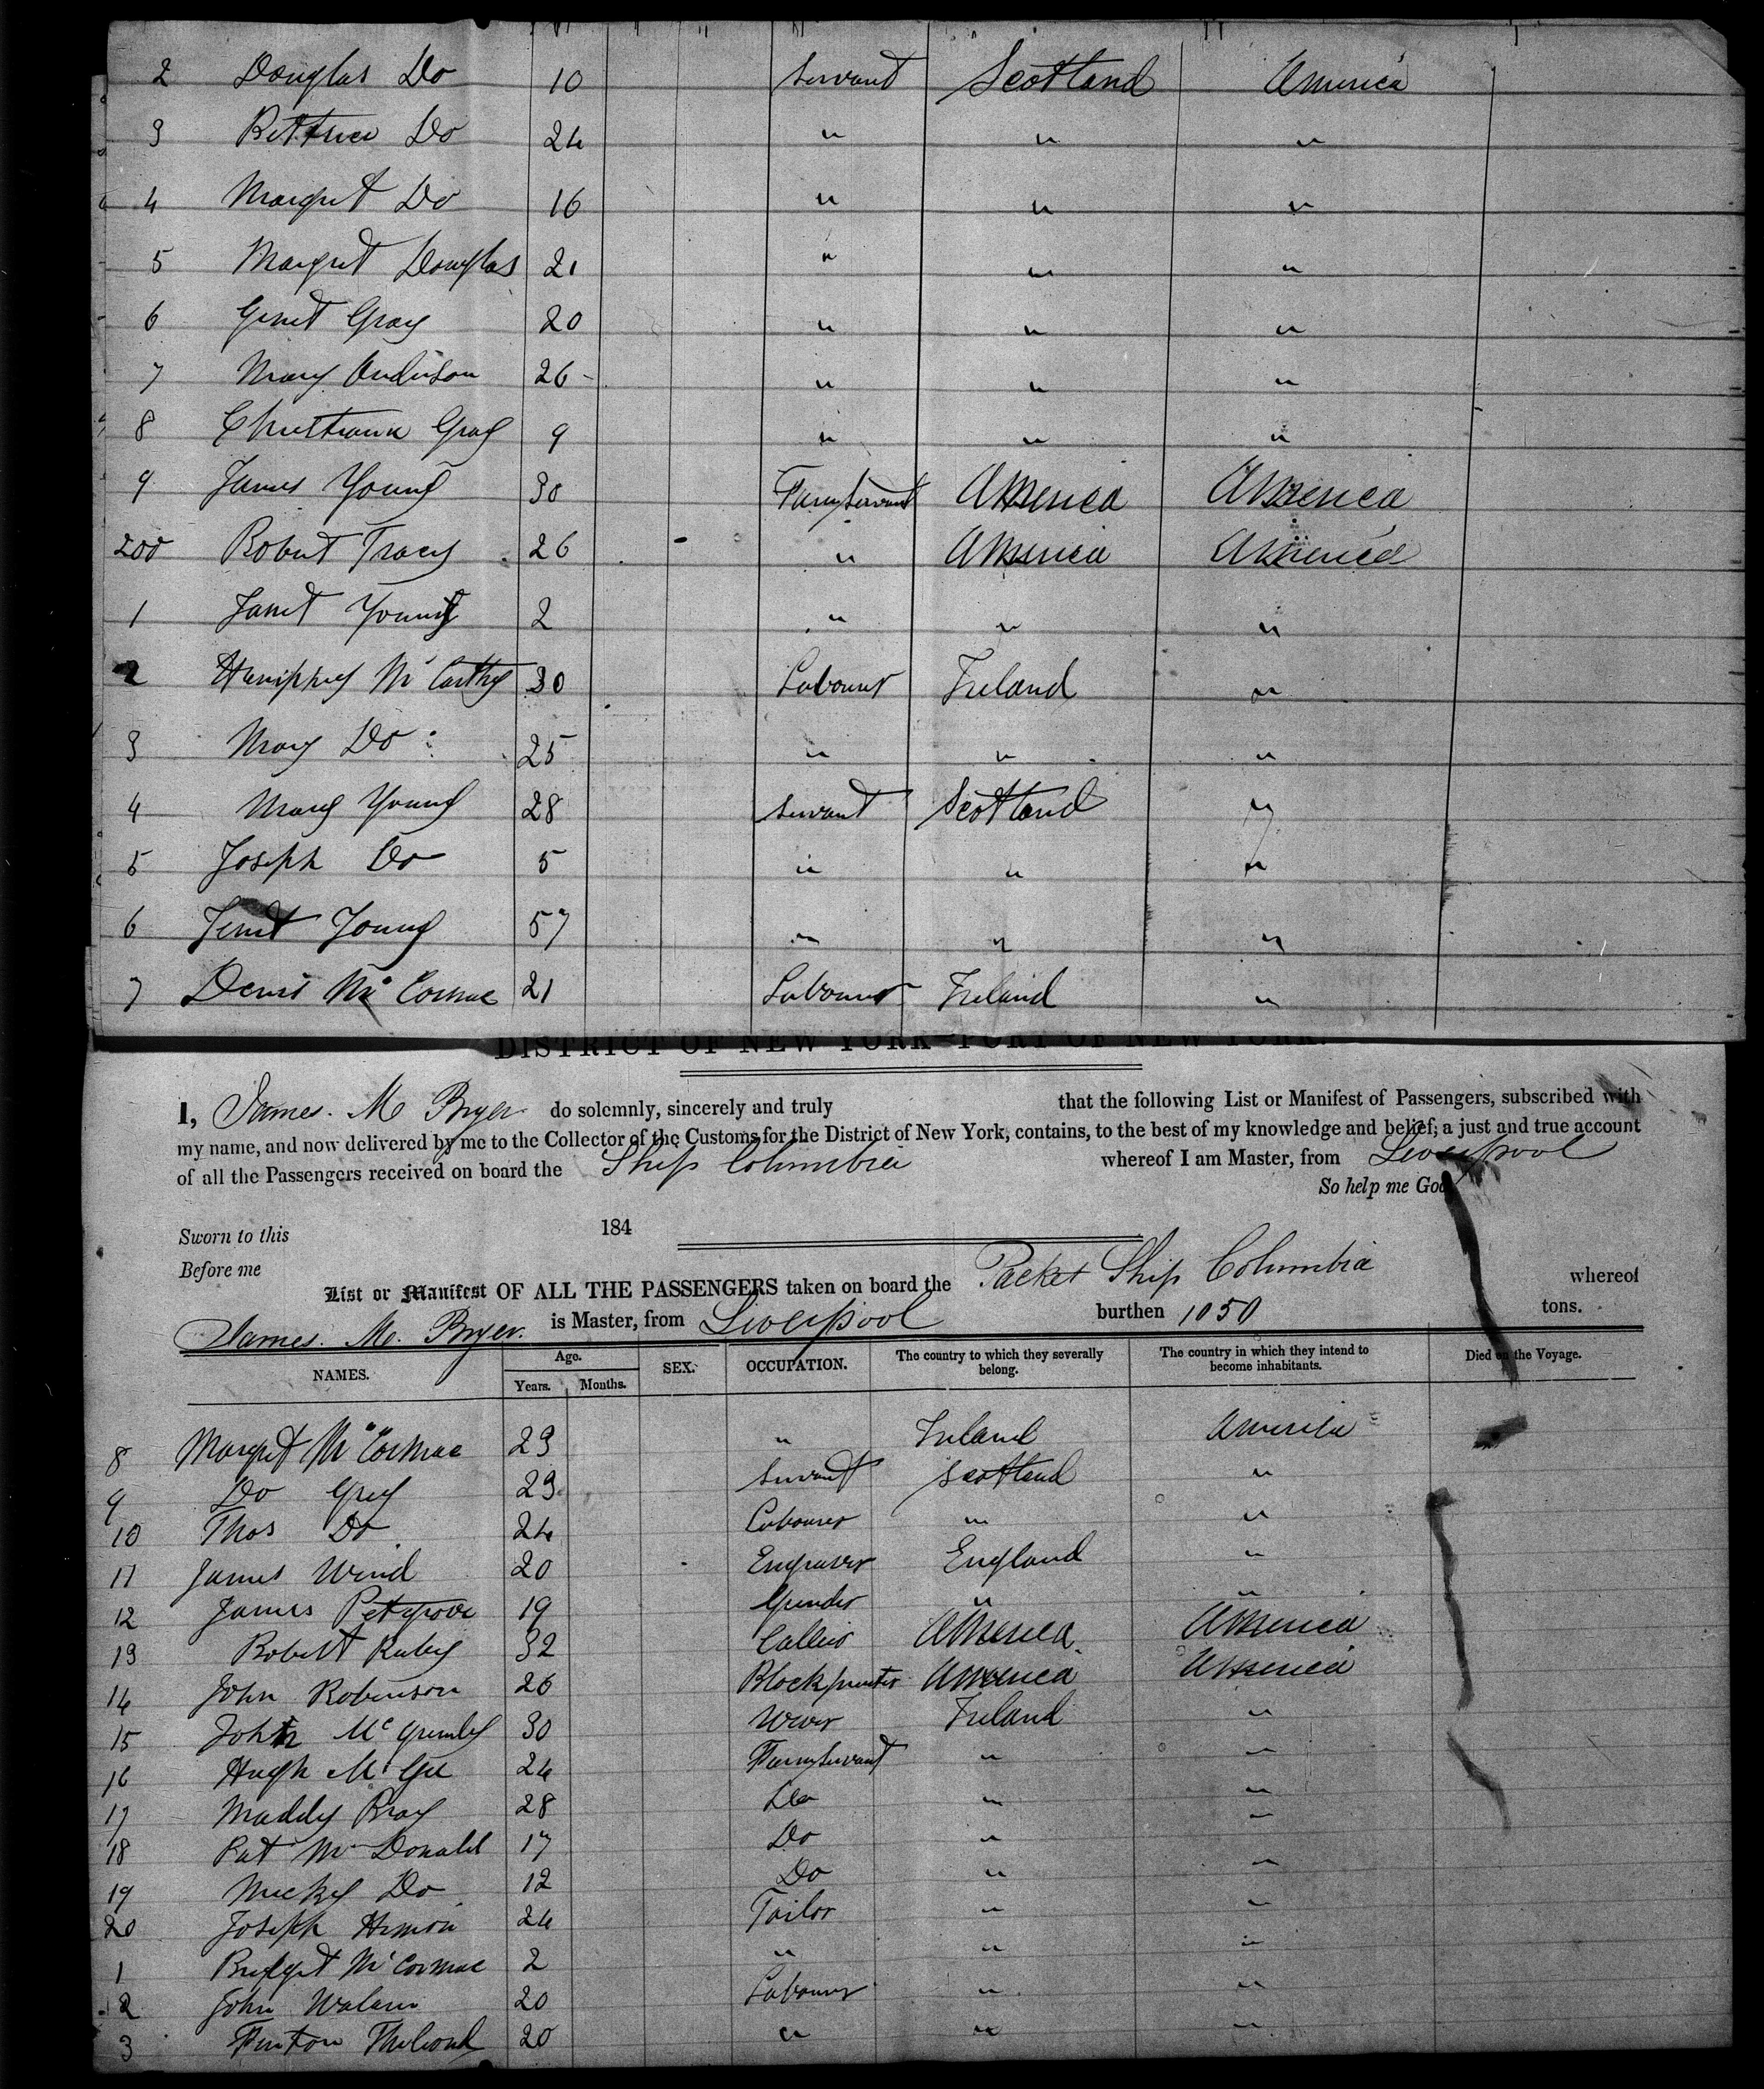 2 Douglas Do 10 Servant Scotland America
3 Do 24 " " "
4 Margret Do 16 " " "
5 Margret Douglas 21 " " "
6 Genet Gray 20 " " "
7 Mary Anderson 26 " " "
8 Christiana Gray 9 " " "
9 James Young 30 Farm Servant America America
200 Robert Tracy 26 " America America
1 Janet Young 2 " " "
2 Humphrey Mc Carthy 30 Labourer Ireland "
3 Mary Do 25 " " "
4 Mary Young 28 Servant Scotland "
5 Joseph Do 5 " " "
6 Jenet Young 57 " " "
7 Denis Mc Cormac 21 Labourer Ireland "
DISTRICT OF NEW YORK—PORT OF NEW YORK.
I, James. M Bryer do solemnly, sincerely and truly that the following List or Manifest of Passengers, subscribed with
my name, and now delivered by me to the Collector of the Customs for the District of New York, contains, to the best of my knowledge and belief, a just and true account
of all the Passengers received on board the Ship Columbia whereof I am Master, from Liverpool
So help me God
Sworn to this 184
Before me
List or Manifest OF ALL THE PASSENGERS taken on board the Packet Ship Columbia whereof
James. M. Bryer. is Master, from Liverpool burthen 1050 tons.
NAMES. Age. Years. Months. SEX. OCCUPATION. The country to which they severally belong. The country in which they intend to become inhabitants. Died on the Voyage.
8 Margret Mc Cormac 23 " Ireland America
9 Do Grey 23 Servant Scotland "
10 Thos Do 24 Labourer " "
11 James Wind 20 Engraver England "
12 James Petgrove 19 Grinder " "
13 Robert Ruby 32 Collier America America
14 John Robinson 26 Blockprinter America America
15 John Mc 30 Ireland "
16 Hugh Mc Gee 24 Farm Servant " "
17 Maddy Bray 28 Do " "
18 Pat Mc Donald 17 Do " "
19 Mickey Do 12 Do " "
20 Joseph 24 Tailor " "
1 Bridget Mc Cormac 2 " " "
2 John 20 Labourer " "
3 Finton 20 " " "